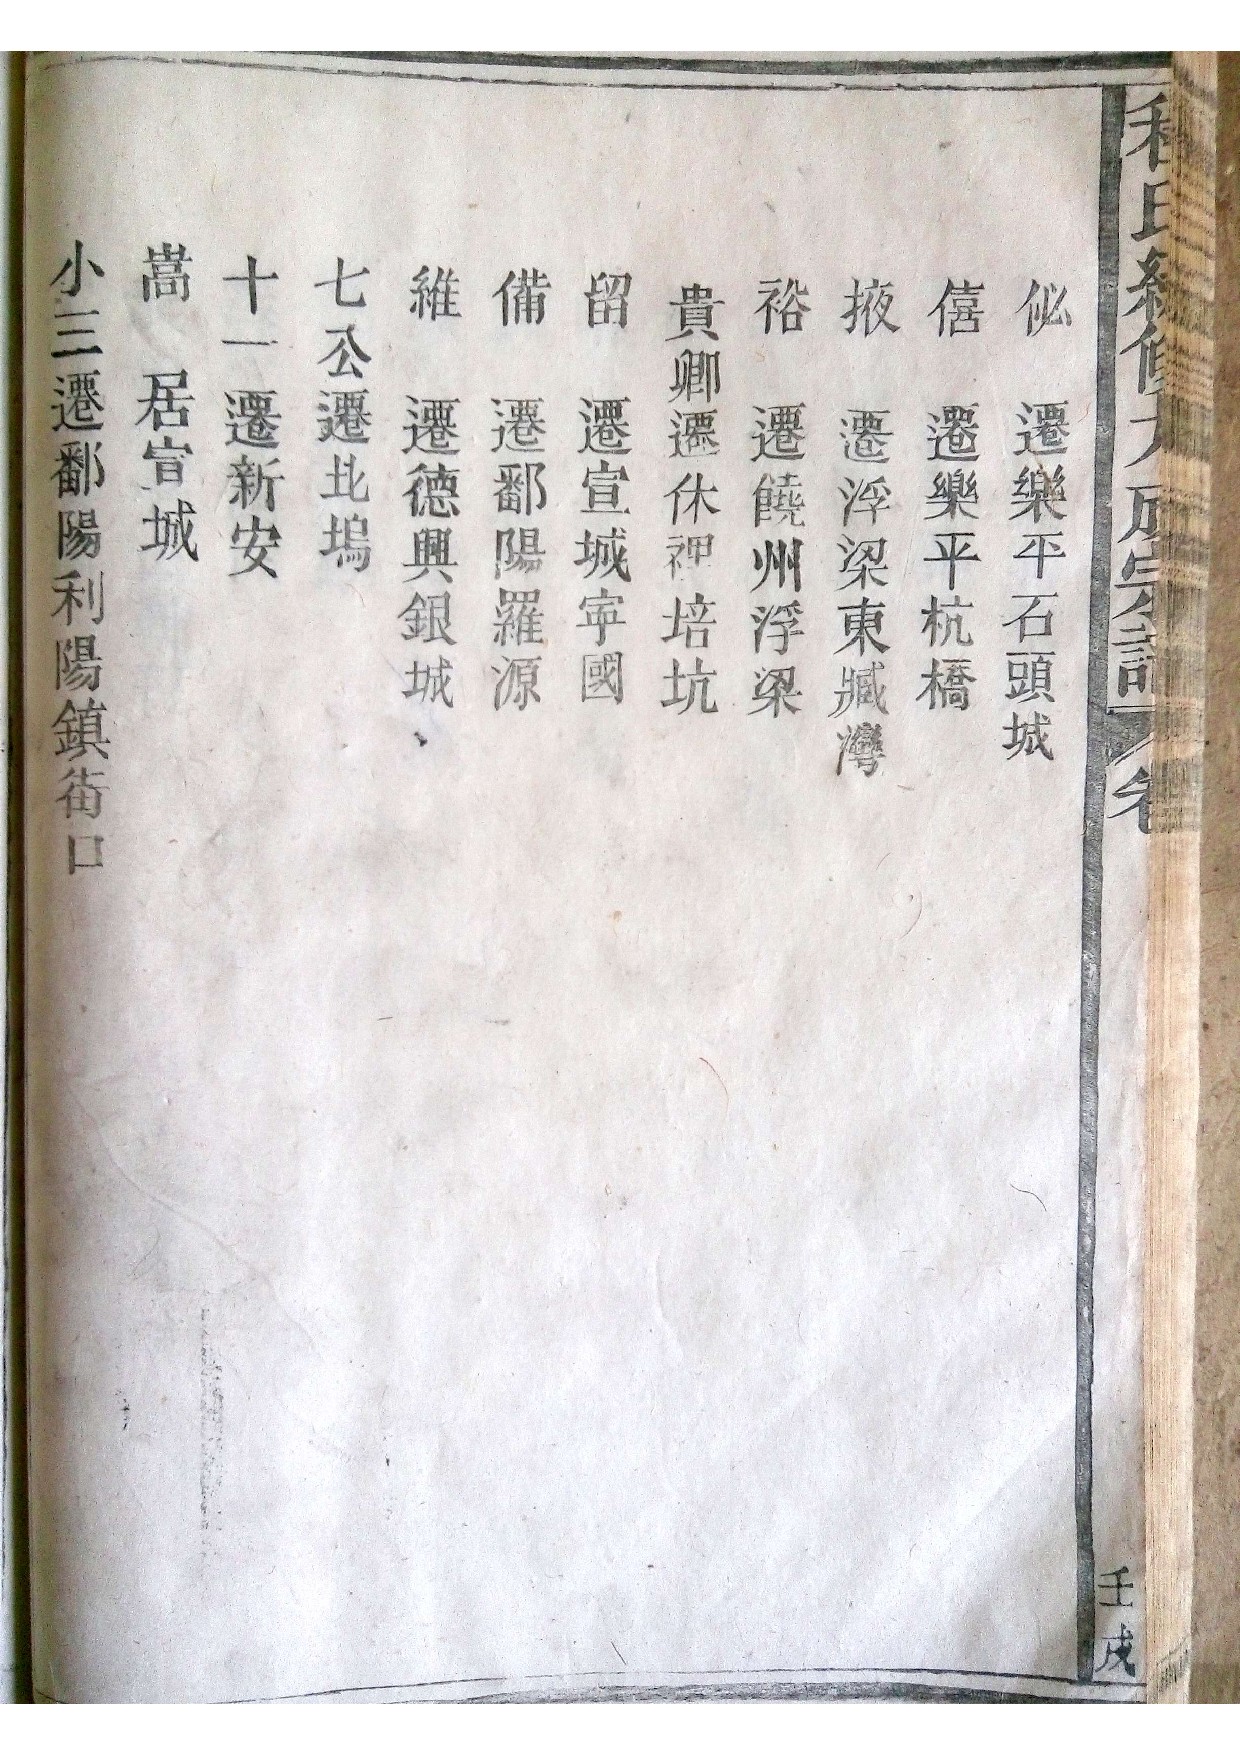 程氏統修大成宗譜 卷
壬戌
佖 遷樂平石頭城
僖 遷樂平杭橋
掖 遷浮梁東臧灣
裕 遷饒州浮梁
貴卿遷休裡培坑
留 遷宣城寧國
備 遷鄱陽羅源
維 遷德興銀城、
七公遷北塢
十一 遷新安
嵩 居宣城
小三遷鄱陽利陽鎮街口